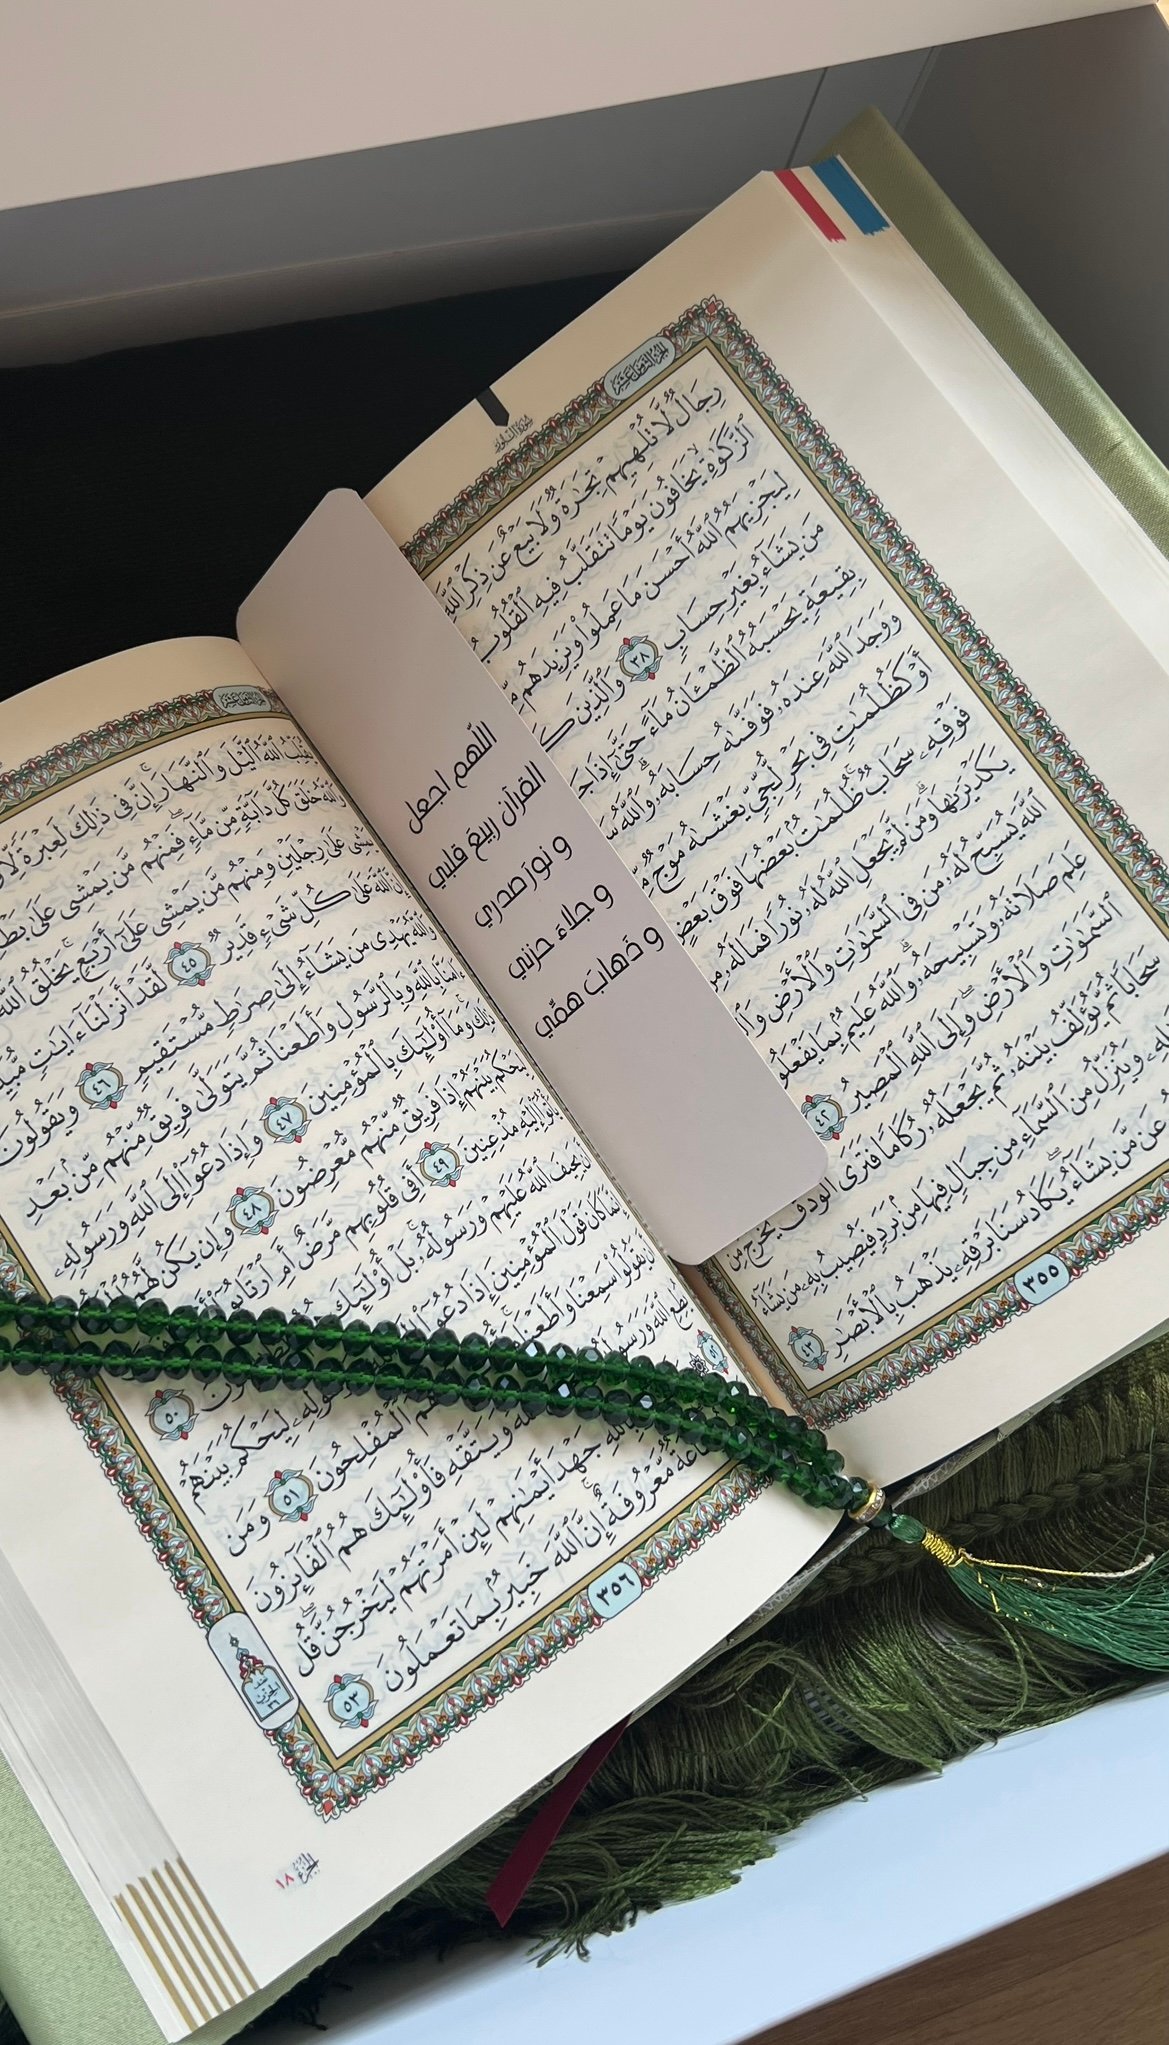 الجزء الثامن عشر
سورة النور
رِجَالٌ لَّا تُلْهِيهِمْ تِجَٰرَةٌ وَلَا بَيْعٌ عَن ذِكْرِ ٱللَّهِ
ٱلزَّكَوٰةِ يَخَافُونَ يَوْمًا تَتَقَلَّبُ فِيهِ ٱلْقُلُوبُ
لِيَجْزِيَهُمُ ٱللَّهُ أَحْسَنَ مَا عَمِلُوا۟ وَيَزِيدَهُم
مَن يَشَآءُ بِغَيْرِ حِسَابٍ ٣٨ وَٱلَّذِينَ
بِقِيعَةٍ يَحْسَبُهُ ٱلظَّمْـَٔانُ مَآءً حَتَّىٰٓ إِذَا
وَوَجَدَ ٱللَّهَ عِندَهُۥ فَوَفَّىٰهُ حِسَابَهُۥ وَٱللَّهُ
أَوْ كَظُلُمَٰتٍ فِى بَحْرٍ لُّجِّىٍّ يَغْشَىٰهُ مَوْجٌ
فَوْقِهِۦ سَحَابٌ ظُلُمَٰتٌۢ بَعْضُهَا فَوْقَ بَعْضٍ
يَكَدْ يَرَىٰهَا وَمَن لَّمْ يَجْعَلِ ٱللَّهُ لَهُۥ نُورًا فَمَا لَهُۥ مِن
ٱللَّهَ يُسَبِّحُ لَهُۥ مَن فِى ٱلسَّمَٰوَٰتِ وَٱلْأَرْضِ
عَلِمَ صَلَاتَهُۥ وَتَسْبِيحَهُۥ وَٱللَّهُ عَلِيمٌۢ بِمَا يَفْعَلُو
ٱلسَّمَٰوَٰتِ وَٱلْأَرْضِ وَإِلَى ٱللَّهِ ٱلْمَصِيرُ ٤٢
سَحَابًا ثُمَّ يُؤَلِّفُ بَيْنَهُۥ ثُمَّ يَجْعَلُهُۥ رُكَامًا فَتَرَى ٱلْوَدْقَ يَخْرُجُ مِنْ
وَيُنَزِّلُ مِنَ ٱلسَّمَآءِ مِن جِبَالٍ فِيهَا مِنۢ بَرَدٍ فَيُصِيبُ بِهِۦ مَن يَشَآءُ
عَن مَّن يَشَآءُ يَكَادُ سَنَا بَرْقِهِۦ يَذْهَبُ بِٱلْأَبْصَٰرِ ٤٣
٣٥٥
اللّهم اجعل
القرآن ربيع قلبي
و نورَ صدري
و جلاءَ حزني
و ذَهابَ همّي
يُقَلِّبُ ٱللَّهُ ٱلَّيْلَ وَٱلنَّهَارَ إِنَّ فِى ذَٰلِكَ لَعِبْرَةً
وَٱللَّهُ خَلَقَ كُلَّ دَآبَّةٍ مِّن مَّآءٍ فَمِنْهُم مَّن يَمْشِى عَلَىٰ
يَمْشِى عَلَىٰ رِجْلَيْنِ وَمِنْهُم مَّن يَمْشِى عَلَىٰٓ أَرْبَعٍ يَخْلُقُ ٱللَّهُ
إِنَّ ٱللَّهَ عَلَىٰ كُلِّ شَىْءٍ قَدِيرٌ ٤٥ لَّقَدْ أَنزَلْنَآ ءَايَٰتٍ
وَٱللَّهُ يَهْدِى مَن يَشَآءُ إِلَىٰ صِرَٰطٍ مُّسْتَقِيمٍ ٤٦ وَيَقُولُونَ
ءَامَنَّا بِٱللَّهِ وَبِٱلرَّسُولِ وَأَطَعْنَا ثُمَّ يَتَوَلَّىٰ فَرِيقٌ مِّنْهُم مِّنۢ بَعْدِ
ذَٰلِكَ وَمَآ أُو۟لَٰٓئِكَ بِٱلْمُؤْمِنِينَ ٤٧ وَإِذَا دُعُوٓا۟ إِلَى ٱللَّهِ وَرَسُولِهِۦ
لِيَحْكُمَ بَيْنَهُمْ إِذَا فَرِيقٌ مِّنْهُم مُّعْرِضُونَ ٤٨ وَإِن يَكُن لَّهُمُ
يَأْتُوٓا۟ إِلَيْهِ مُذْعِنِينَ ٤٩ أَفِى قُلُوبِهِم مَّرَضٌ أَمِ ٱرْتَابُوٓا۟
أَن يَحِيفَ ٱللَّهُ عَلَيْهِمْ وَرَسُولُهُۥ بَلْ أُو۟لَٰٓئِكَ ٥٠
إِنَّمَا كَانَ قَوْلَ ٱلْمُؤْمِنِينَ إِذَا دُعُوٓا۟ لِيَحْكُمَ بَيْنَهُمْ
أَن يَقُولُوا۟ سَمِعْنَا وَأَطَعْنَا ٱلْمُفْلِحُونَ ٥١ وَمَن
يُطِعِ ٱللَّهَ وَرَسُولَهُۥ وَيَتَّقْهِ فَأُو۟لَٰٓئِكَ هُمُ ٱلْفَآئِزُونَ
٥٢ جَهْدَ أَيْمَٰنِهِمْ لَئِنْ أَمَرْتَهُمْ لَيَخْرُجُنَّ قُل
مَّعْرُوفَةٌ إِنَّ ٱللَّهَ خَبِيرٌۢ بِمَا تَعْمَلُونَ ٥٣
٣٥٦
الجزء ١٨